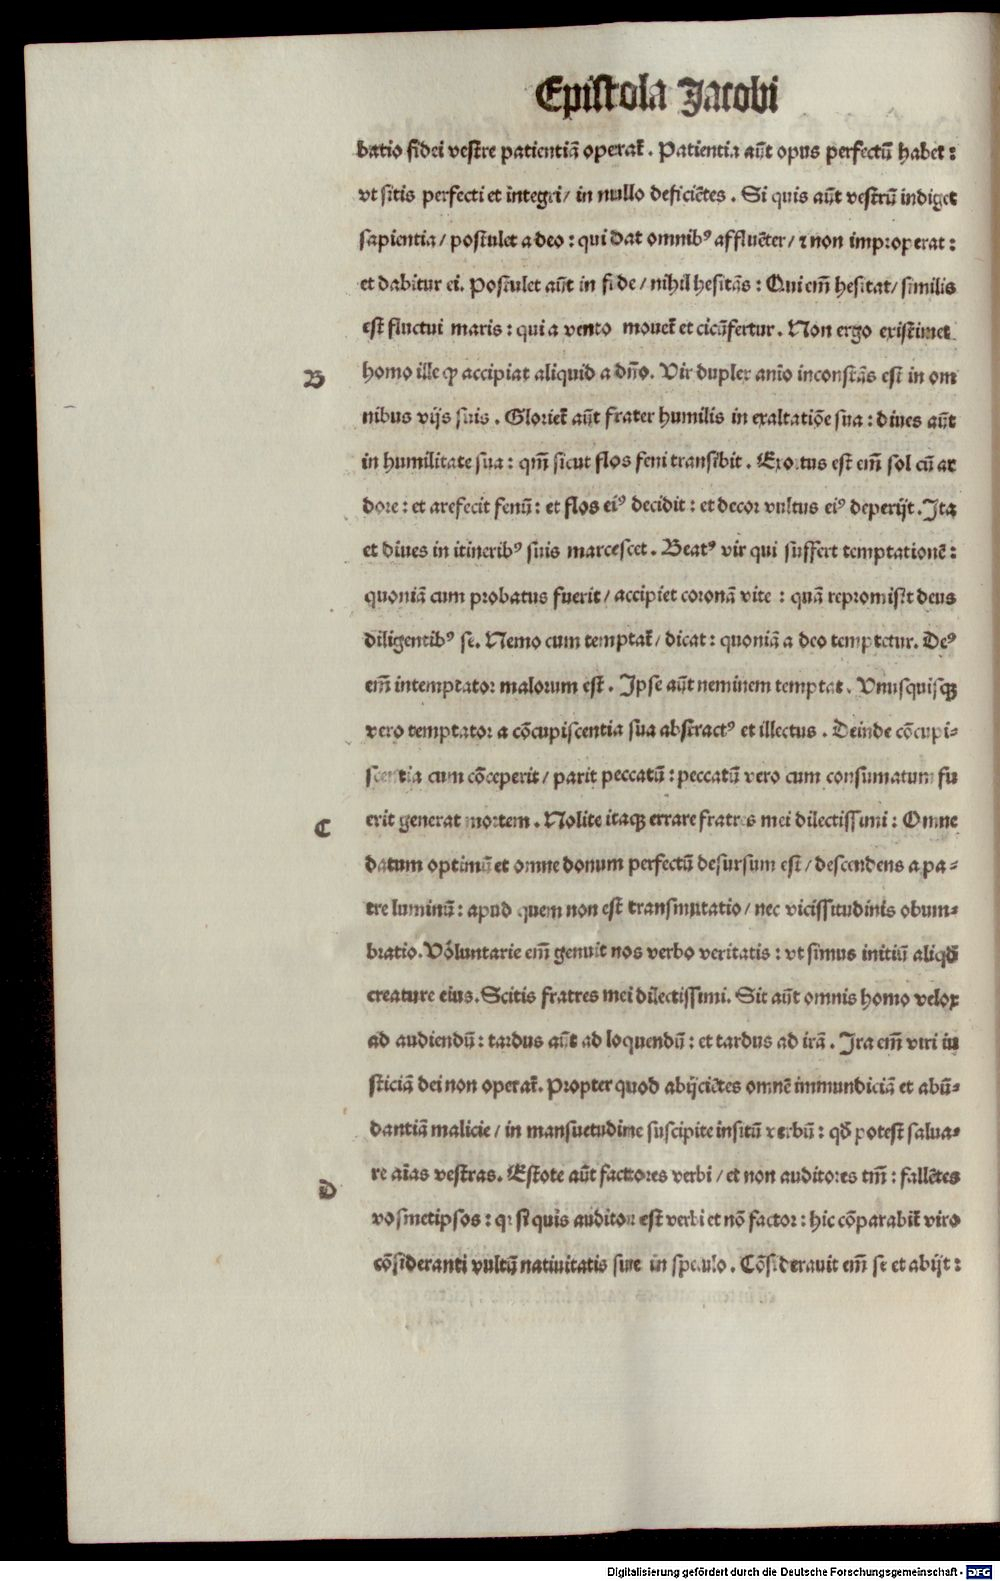 Epistola Jacobi
batio fidei vestre patientiā operat̄. Patientia aūt opus perfectū habet:
vt sitis perfecti et integri/ in nullo deficiētes. Si quis aūt vestrū indiget
sapientia/ postulet a deo: qui dat omnibꝰ affluēter/ ⁊ non improperat:
et dabitur ei. Postulet aūt in fide/ nihil hesitās: Qui em̄ hesitat/ similis
est fluctui maris: qui a vento mouet̄ et circūfertur. Non ergo existimet
B
homo ille ꝙ accipiat aliquid a dn̄o. Vir duplex anīo inconstās est in om
nibus vijs suis. Gloriet̄ aūt frater humilis in exaltatiōe sua: diues aūt
in humilitate sua: qm̄ sicut flos feni transibit. Exortus est em̄ sol cū ar
dore: et arefecit fenū: et flos eiꝰ decidit: et decor vultus eiꝰ deperijt. Ita
et diues in itineribꝰ suis marcescet. Beatꝰ vir qui suffert temptationē:
quoniā cum probatus fuerit/ accipiet coronā vite: quā repromisit deus
diligentibꝰ se. Nemo cum temptat̄/ dicat: quoniā a deo temptetur. Deꝰ
em̄ intemptator malorum est. Ipse aūt neminem temptat. Vnusquisqꝫ
vero temptator a cōcupiscentia sua abstractꝰ et illectus. Deinde cōcupi-
scentia cum cōceperit/ parit peccatū: peccatū vero cum consumatum fu
C
erit generat mortem. Nolite itaqꝫ errare fratres mei dilectissimi: Omne
datum optimū et omne donum perfectū desursum est/ descendens a pa-
tre luminū: apud quem non est transmutatio/ nec vicissitudinis obum-
bratio. Voluntarie em̄ genuit nos verbo veritatis: vt simus initiū aliqd̄
creature eius. Scitis fratres mei dilectissimi. Sit aūt omnis homo velox
ad audiendū: tardus aūt ad loquendū: et tardus ad irā. Ira em̄ viri iu
sticiā dei non operat̄. Propter quod abijciētes omnē immundiciā et abū-
dantiā malicie/ in mansuetudine suscipite insitū verbū: qd̄ potest salua-
D
re aīas vestras. Estote aūt factores verbi/ et non auditores tm̄: fallētes
vosmetipsos: qꝛ si quis auditor est verbi et nō factor: hic cōparabit̄ viro
cōsideranti vultū natiuitatis sue in speculo. Cōsiderauit em̄ se et abijt:
Digitalisierung gefördert durch die Deutsche Forschungsgemeinschaft - DFG